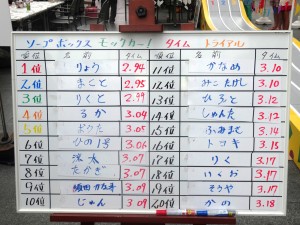 ソープボックス モックカー! タイム トライアル
順位 名前 タイム 順位 名前 タイム
1位 りょう 2.94 11位 かなめ 3.10
2位 まこと 2.95 12位 みこ たけし 3.10
3位 りくと 2.99 13位 ひろと 3.12
4位 るか 3.04 14位 しゅんた 3.12
5位 3.05 15位 ふみまさ 3.14
6位 ひの1号 3.06 16位 トコキ 3.15
7位 涼太 3.07 17位 りく 3.17
8位 たかぎ 3.07 18位 いくお 3.17
9位 3.09 19位 そうや 3.17
10位 じゅん 3.09 20位 かの 3.18